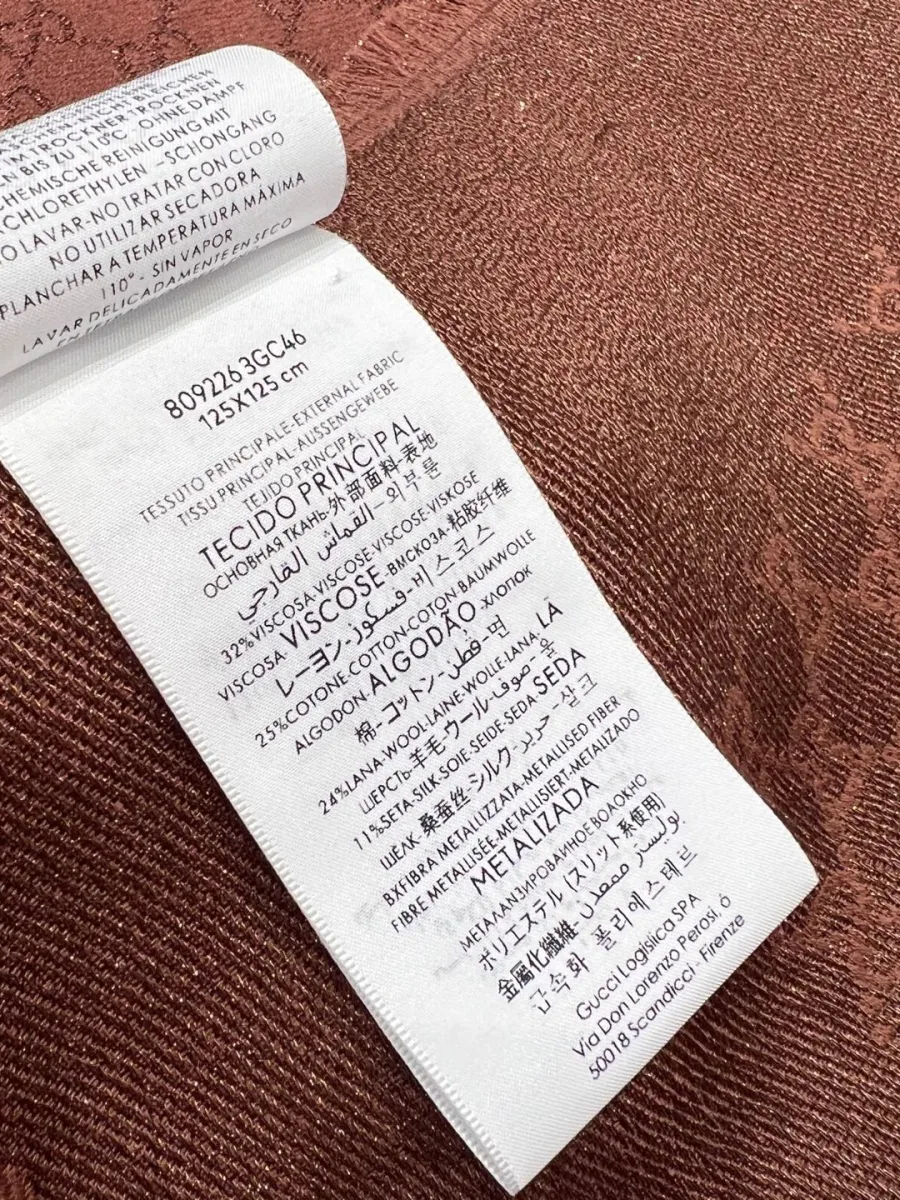 M TROCKNER TROCKNEN
N BIS ZU 110C - OHNE DAMPF
HEMISCHE REINIGUNG MIT
CHLORETHYLEN -SCHONGANG
O LAVAR-NO TRATAR CON CLORO
NO UTILIZAR SECADORA
PLANCHAR A TEMPERATURA MÁXIMA
110° - SIN VAPOR
LAVAR DELICADAMENTE EN SECO
809226 3GC46
125X125 cm
TESSUTO PRINCIPALE-EXTERNAL FABRIC
TISSU PRINCIPAL-AUSSENGEWEBE
TEJIDO PRINCIPAL
TECIDO PRINCIPAL
ОСНОВНАЯ ТКАНЬ-外部面料-表地
القماش الخارجي-외부 룸
32%VISCOSA-VISCOSE-VISCOSE-VISKOSE
VISCOSA VISCOSE-ВМСКОЗА-粘胶纤维
レーヨン-فسكوز-비스코스
25%COTONE-COTTON-COTON-BAUMWOLLE
ALGODON-ALGODÃO-ХЛОПОК
棉-コットン-قطن-면
24%LANA-WOOL-LAINE-WOLLE-LANA-LÃ
ШЕРСТЬ-羊毛-ウール-صوف-울
11%SETA-SILK-SOIE-SEIDE-SEDA-SEDA
ШЕЛК-桑蚕丝-シルク-حرير-실크
8XFIBRA METALLIZZATA-METALLISED FIBER
FIBRE METALLISÉE-METALLISIERT-METALIZADO
METALIZADA
МЕТАЛАНЗИРОВАННОЕ ВОЛОКНО
ポリエステル (スリット糸使用)
金屬化纖維-بوليستر ممعدن
금속화 폴리에스테르
Gucci Logisiica SPA
Via Don Lorenzo Perosi, 6
50018 Scandicci - Firenze